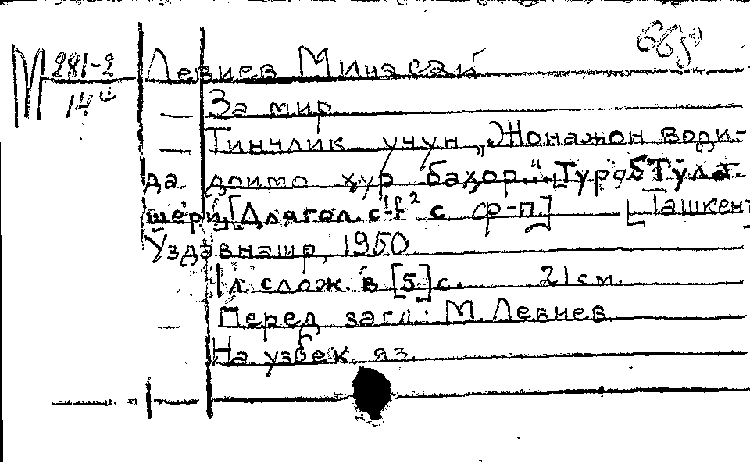 665
М 281-2 Левиев Минасай
14
За мир
Тинчлик учун „Жонажон води-
да доимо ҳур баҳор." Тўла
шеъри [Для гол. с ф-п.] [Ташкент]
Уздавнашр, 1950
1 л слож. в [5] с. 21 см.
Перед загл: М. Левиев
На узбек. яз.